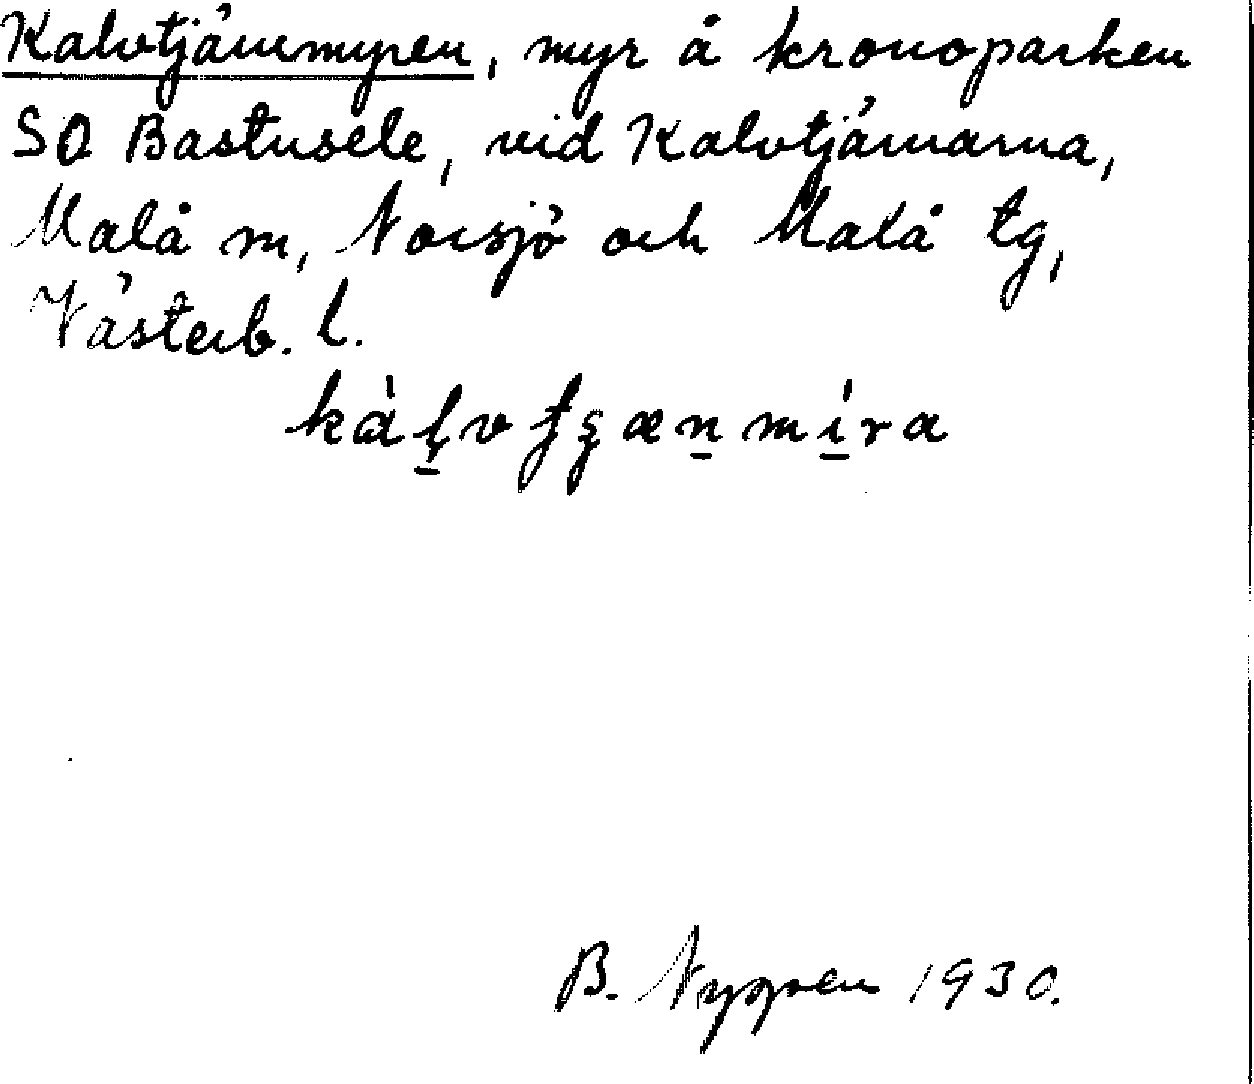 Kalvtjärnmyren, myr å kronoparken
SO Bastusele, vid Kalvtjärnarna,
Malå sn, Norsjö och Malå tg,
Västerb. l.
kàḷv tʃæn míra
B. Nygren 1930.